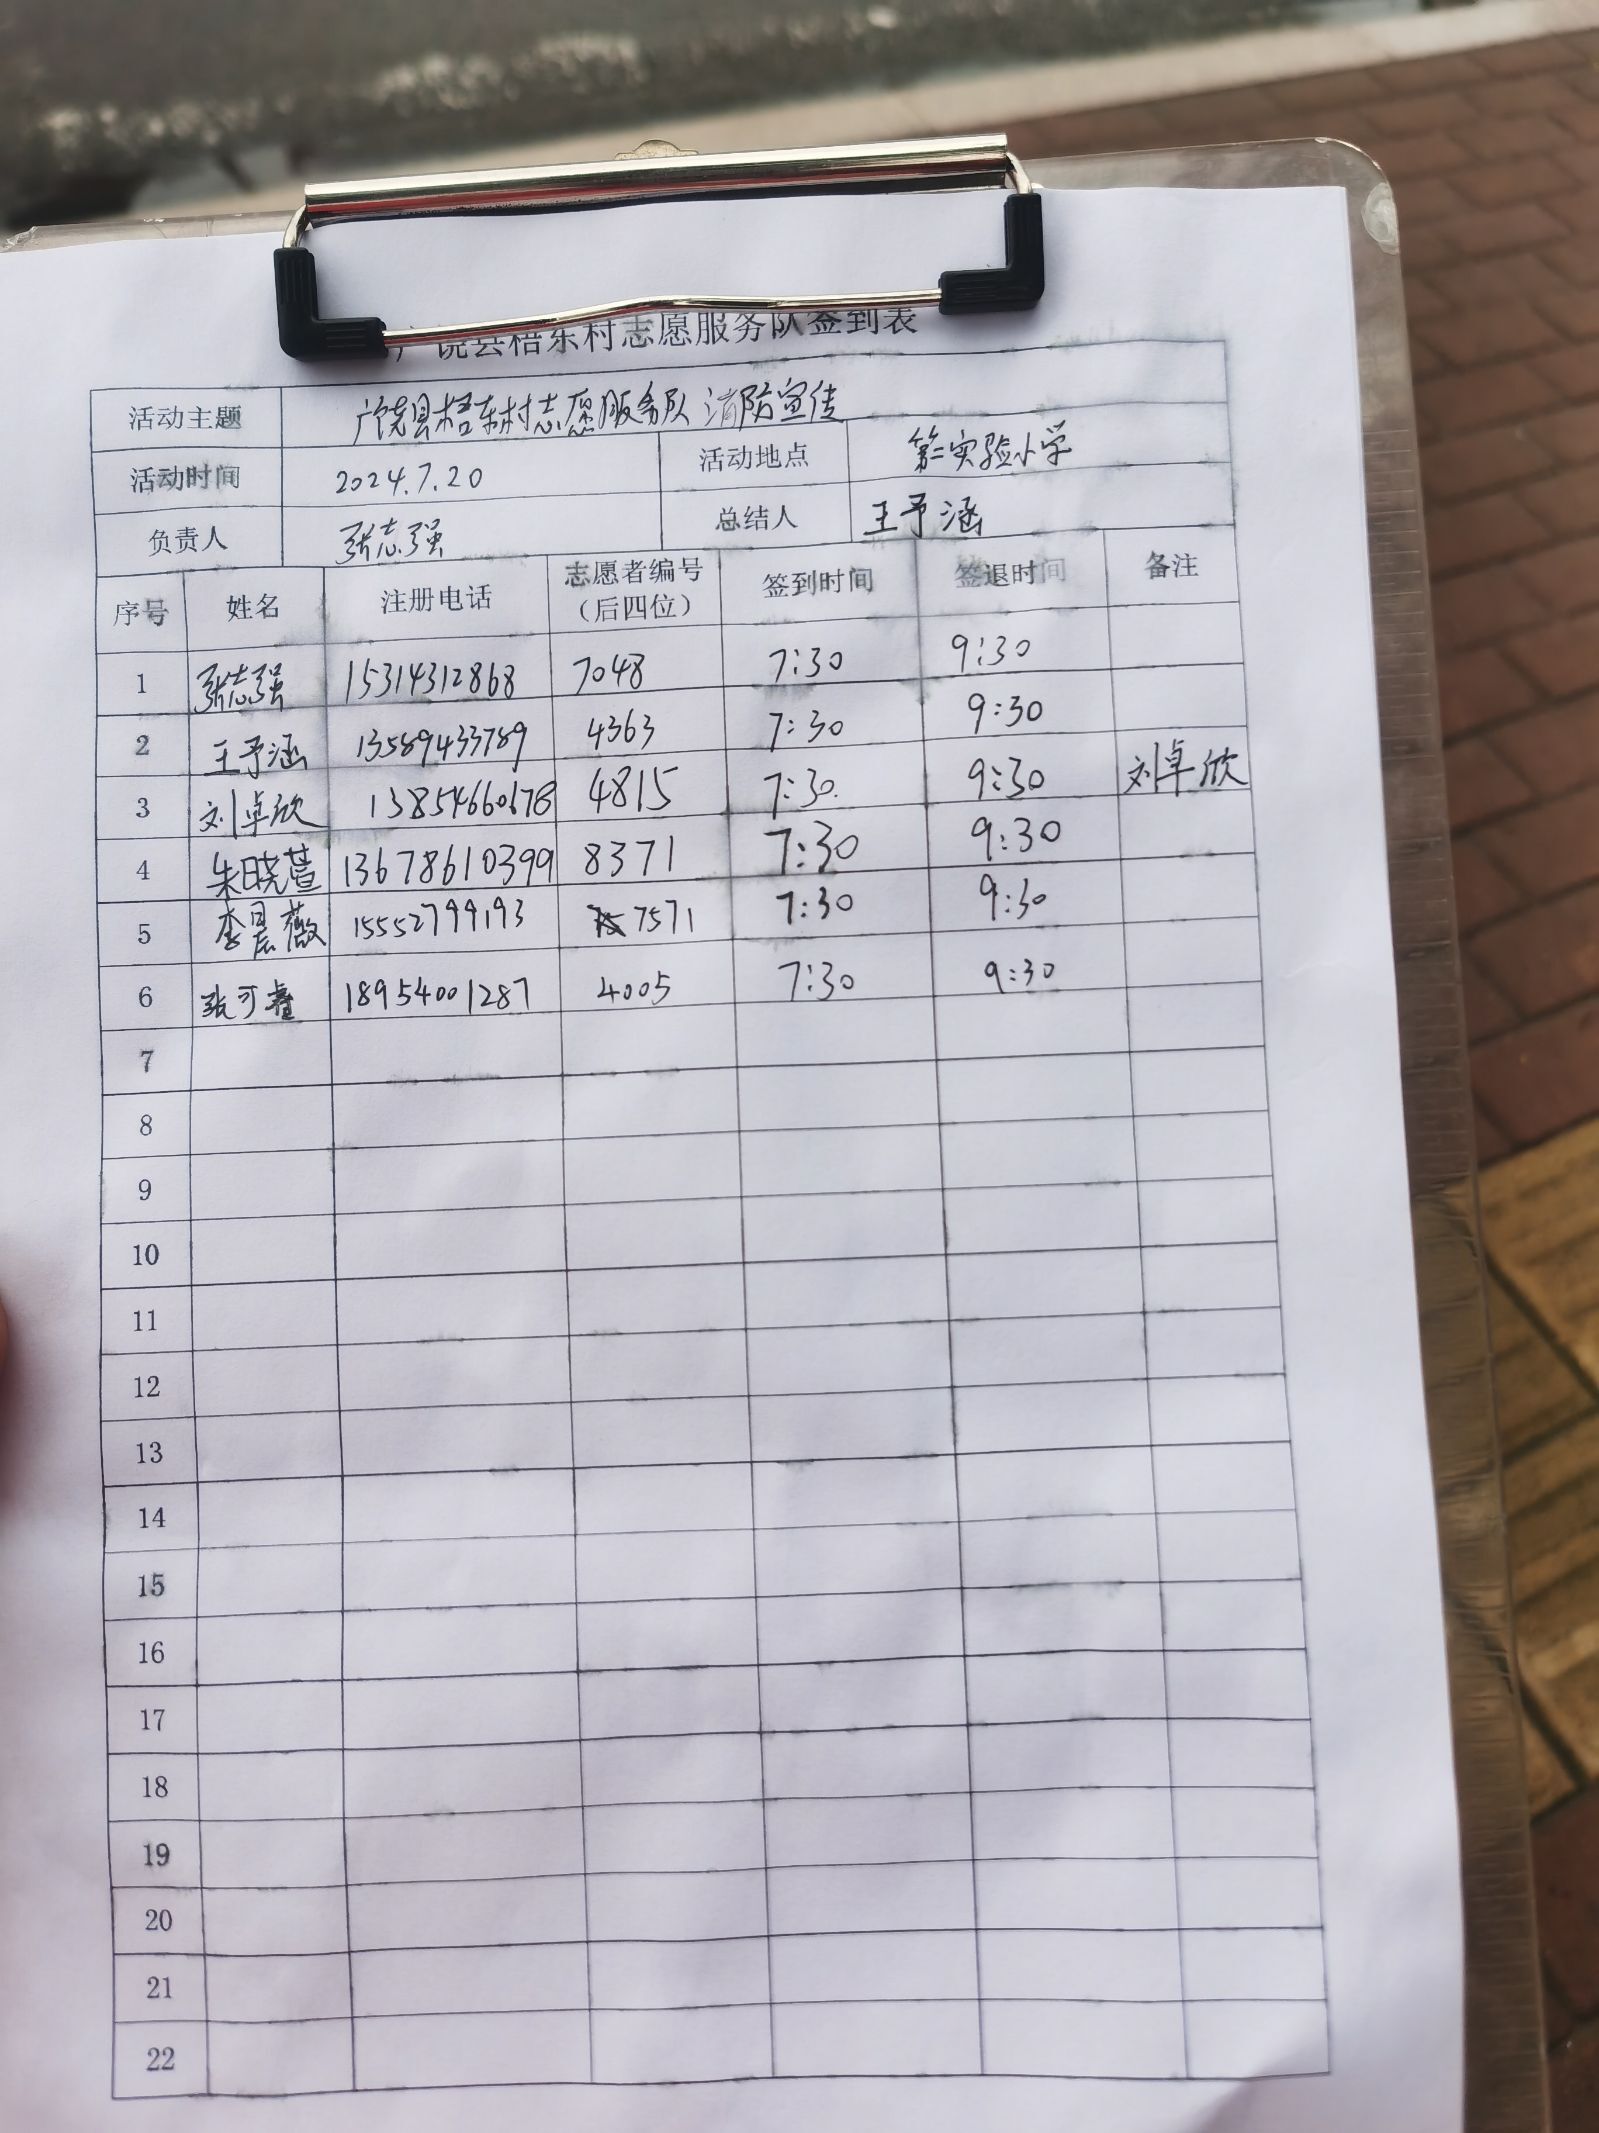 广饶县梧东村志愿服务队签到表
活动主题 广饶县梧东村志愿服务队消防宣传
活动时间 2024.7.20 活动地点 第二实验小学
负责人 张志强 总结人 王予涵
序号 姓名 注册电话 志愿者编号（后四位） 签到时间 签退时间 备注
1 张志强 15314312868 7048 7:30 9:30
2 王予涵 13589433789 4363 7:30 9:30
3 刘卓欣 13854660678 4815 7:30. 9:30 刘卓欣
4 朱晓萱 13678610399 8371 7:30 9:30
5 李晨薇 15552799193 7571 7:30 9:30
6 张可鑫 18954001287 4005 7:30 9:30
7
8
9
10
11
12
13
14
15
16
17
18
19
20
21
22